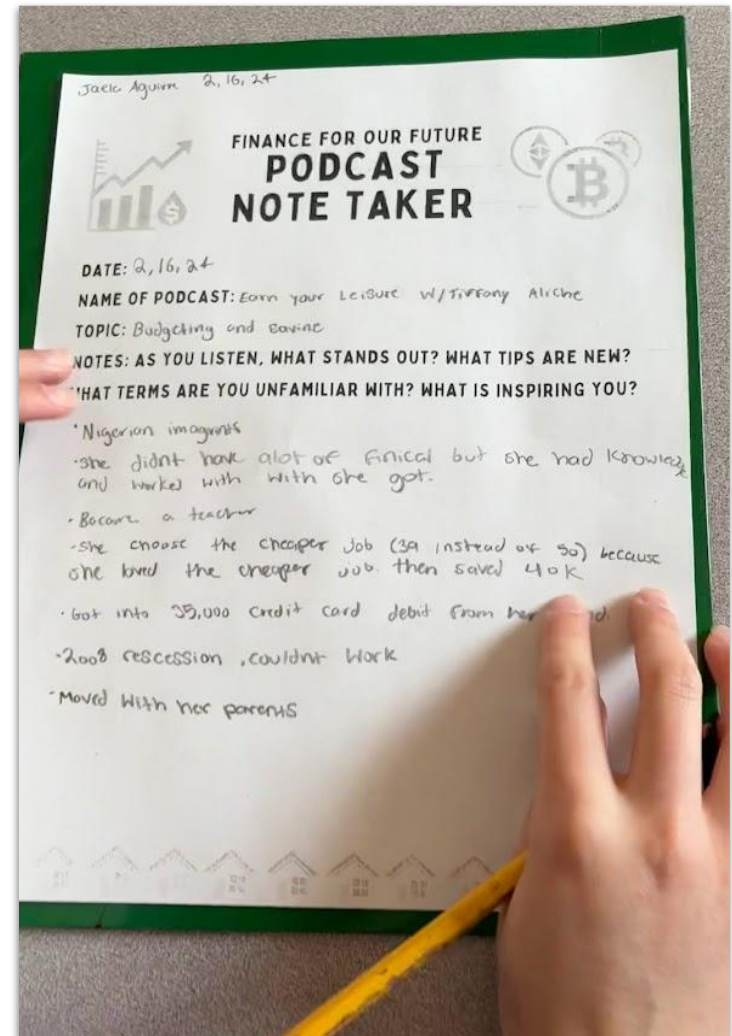 Jaela 2, 16, 24
FINANCE FOR OUR FUTURE
PODCAST
NOTE TAKER
DATE: 2, 16, 24
NAME OF PODCAST: Earn your Leisure w/Tiffany Aliche
TOPIC: Budgeting and Saving
NOTES: AS YOU LISTEN, WHAT STANDS OUT? WHAT TIPS ARE NEW?
WHAT TERMS ARE YOU UNFAMILIAR WITH? WHAT IS INSPIRING YOU?
• Nigerian
• she didnt have alot of finical but she had knowledge
and worked with with she got.
• Became a teacher
• She choose the cheaper Job (39 instead of 50) because
she loved the cheaper job. then saved 40K
• Got into 35,000 credit card debit from her
• 2008 rescession, couldnt work
• Moved with her parents